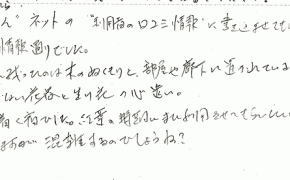 ん” ネットの “利用者の口コミ情報”に書き込ませて
情報通りでした。
残ったのは木のぬくもりと、部屋や廊下に造られている
ない花器と生け花の心遣い。
着く宿でした。紅葉の時期にまた利用させてもらいたい
混雑するのでしょうね?